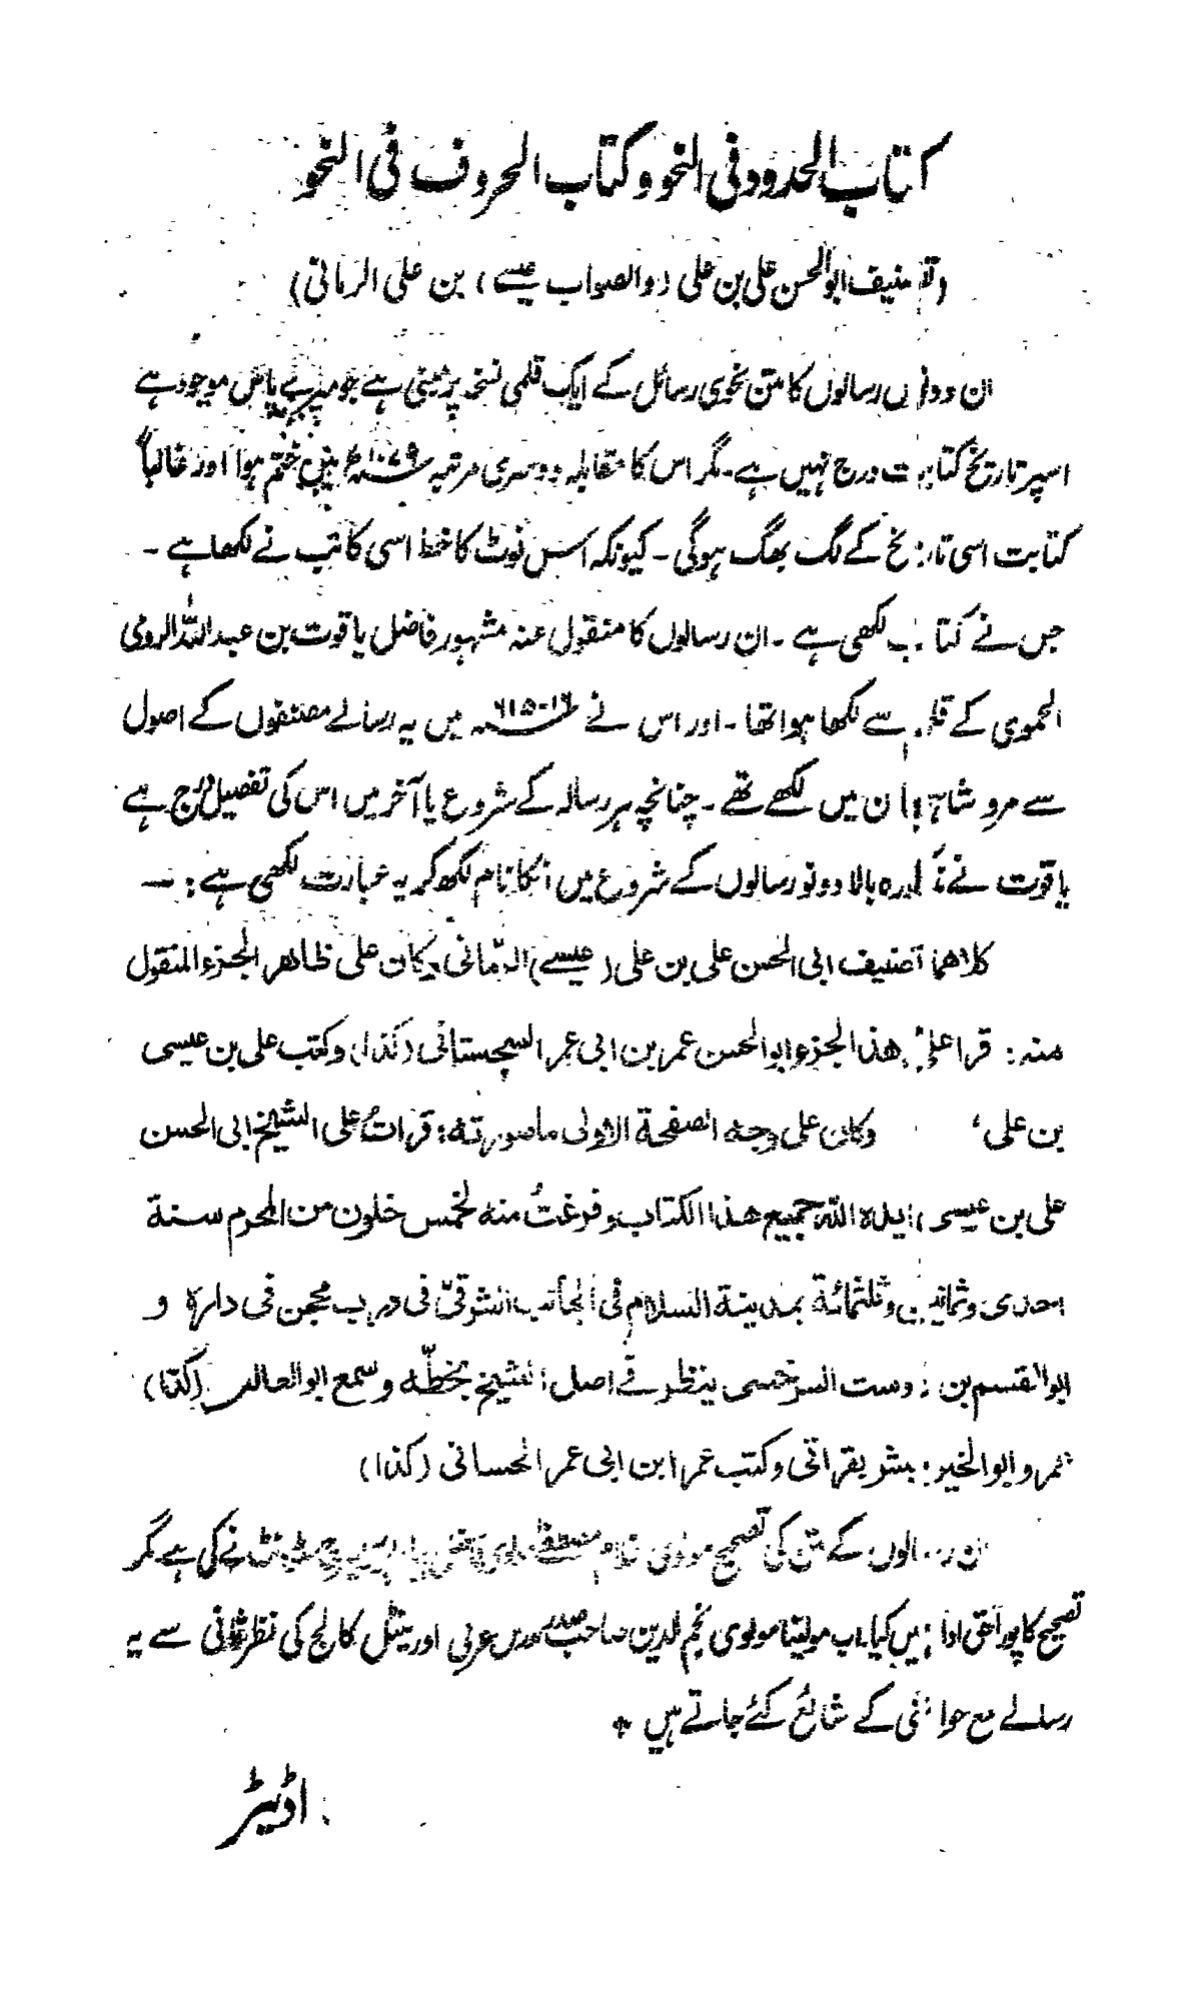 کتاب الحدود فی النحو و کتاب الحروف فی النحو
(تصنیف ابو الحسن علی بن علی (والصواب عیسے) بن علی الرمانی)
ان دونوں رسالوں کا متن نحوی رسائل کے ایک قلمی نسخہ پر مبنی ہے جو میرے پاس موجود ہے
اسپر تاریخ کتابت درج نہیں ہے۔ مگر اس کا مقابلہ دوسری مرتبہ ۱۰۷۹ھ میں ختم ہوا اور غالباً
کتابت اسی تاریخ کے لگ بھگ ہوگی۔ کیونکہ اس نوٹ کا خط اسی کاتب نے لکھا ہے۔
جس نے کتاب لکھی ہے۔ ان رسالوں کا منقول عنہ مشہور فاضل یاقوت بن عبداللہ الرومی
الحموی کے قلم سے لکھا ہوا تھا۔ اور اس نے ۱۶-۶۱۵ھ میں یہ رسالے مصنفوں کے اصول
سے مرو شاہجان میں لکھے تھے۔ چنانچہ ہر رسالہ کے شروع یا آخر میں اس کی تفصیل درج ہے
یاقوت نے مذکورہ بالا دونو رسالوں کے شروع میں انکا نام لکھ کر یہ عبارت لکھی ہے:—
کلاهما تصنیف ابی الحسن علی بن علی (عیسے) الرمّانی وکان علی ظاهر الجزء المنقول
منه: قرا علیّ هذا الجزء ابو الحسن عمر بن ابی عمر السجستانی (کذا) وکتب علی بن عیسی
بن علی، وکان علی وجه الصفحة الاولی ما صورته: قرأتُ علی الشیخ ابی الحسن
علی بن عیسی ایده الله جمیع هذا الکتاب و فرغتُ منه لخمس خلون من المحرم سنة
احدی وثمانین وثلثمائة بمدینة السلام فی الجانب الشرقیّ فی درب فی دارہ و
ابوالقسم بن دوست السرخسی ینظر فے اصل الشیخ بخطّه وسمع ابو العالم (کذا)
عمرو ابو الخیر بشر بقراتی وکتب عمر ابن ابی عمر الحسانی (کذا)
ان رسالوں کے متن کی تصحیح مولوی غلام نے کی ہے مگر
تصحیح کا پورا حق ادا نہیں کیا۔ اب مولینا مولوی نجم الدین صاحب صدر مدرس عربی اورینٹل کالج کی نظر ثانی سے یہ
رسالے مع حواشی کے شائع کئے جاتے ہیں +
اڈیٹر